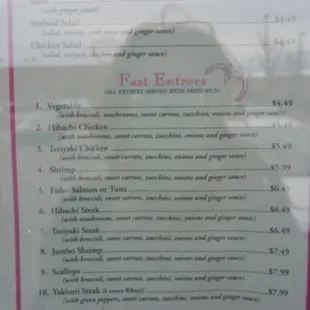 (with ginger sauce)
Seafood Salad $4.49
(salad, shrimp, crab meat and ginger sauce)
Chicken Salad $4.49
(salad, teriyaki chicken and ginger sauce)
Fast Entrees
(ALL ENTREES SERVED WITH FRIED RICE)
1. Vegetable $4.49
(with broccoli, mushrooms, sweet carrots, zucchini, onions and ginger sauce)
2. Hibachi Chicken $5.49
(with mushrooms, sweet carrots, zucchini, onions and ginger sauce)
3. Teriyaki Chicken $5.49
(with broccoli, sweet carrots, zucchini, onions and ginger sauce)
4. Shrimp $5.99
(with broccoli, sweet carrots, zucchini, onions and ginger sauce)
5. Fish- Salmon or Tuna $6.49
(with broccoli, sweet carrots, zucchini, onions and ginger sauce)
6. Hibachi Steak $6.49
(with mushrooms, sweet carrots, zucchini, onions and ginger sauce)
7. Teriyaki Steak $6.49
(with broccoli, sweet carrots, zucchini, onions and ginger sauce)
8. Jumbo Shrimp $7.49
(with broccoli, sweet carrots, zucchini, onions and ginger sauce)
9. Scallops $7.99
(with broccoli, sweet carrots, zucchini, onions and ginger sauce)
10. Yakitori Steak (6 ounces Ribeye) $7.99
(with green peppers, sweet carrots, zucchini, onions and ginger sauce)